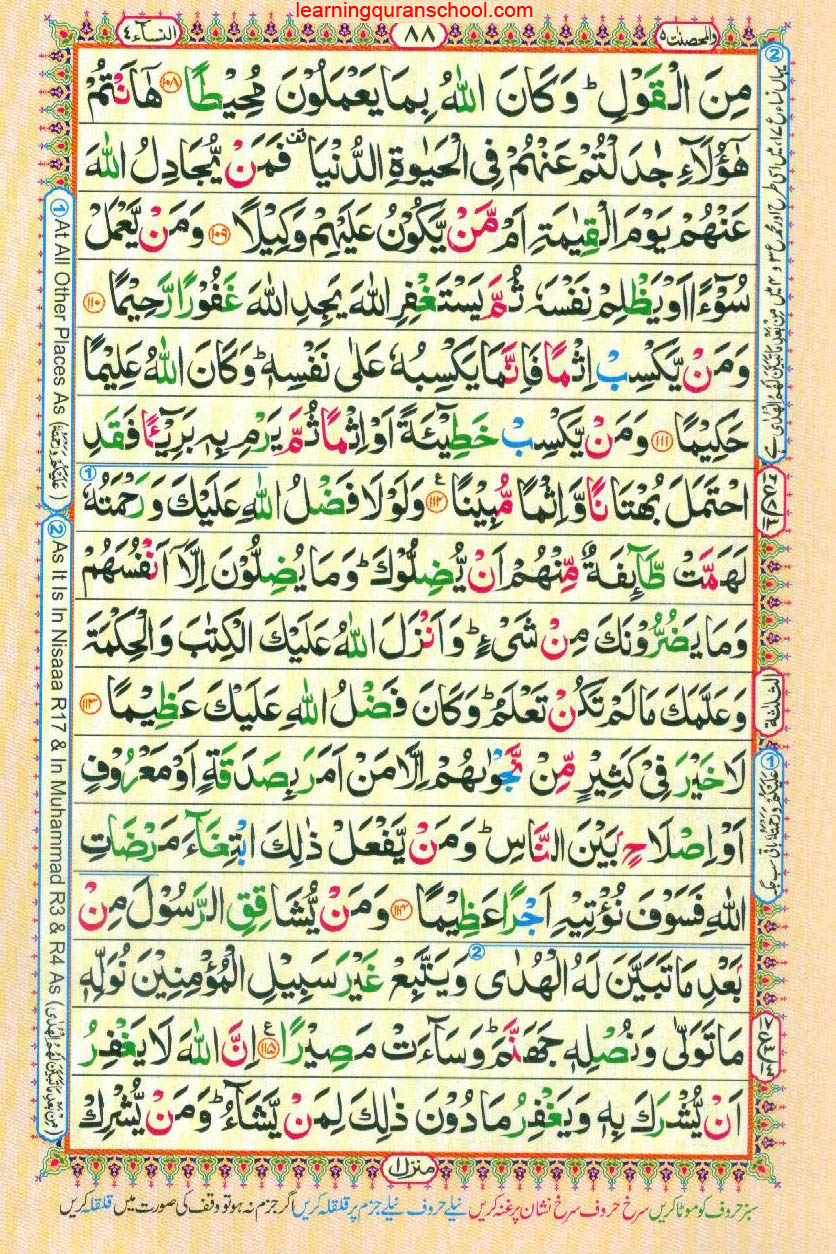 learningquranschool.com
والمحصنت ٥
٨٨
النساء ٤
مِنَ الْقَوْلِ ؕ وَكَانَ اللّٰهُ بِمَا يَعْمَلُوْنَ مُحِيْطًا ﴿۱۰۸﴾ هٰۤاَنْتُمْ
هٰۤؤُلَآءِ جٰدَلْتُمْ عَنْهُمْ فِى الْحَيٰوةِ الدُّنْيَا ۫ فَمَنْ يُّجَادِلُ اللّٰهَ
عَنْهُمْ يَوْمَ الْقِيٰمَةِ اَمْ مَّنْ يَّكُوْنُ عَلَيْهِمْ وَكِيْلًا ﴿۱۰۹﴾ وَمَنْ يَّعْمَلْ
سُوْٓءًا اَوْ يَظْلِمْ نَفْسَهٗ ثُمَّ يَسْتَغْفِرِ اللّٰهَ يَجِدِ اللّٰهَ غَفُوْرًا رَّحِيْمًا ﴿۱۱۰﴾
وَمَنْ يَّكْسِبْ اِثْمًا فَاِنَّمَا يَكْسِبُهٗ عَلٰى نَفْسِهٖ ؕ وَكَانَ اللّٰهُ عَلِيْمًا
حَكِيْمًا ﴿۱۱۱﴾ وَمَنْ يَّكْسِبْ خَطِيْٓئَةً اَوْ اِثْمًا ثُمَّ يَرْمِ بِهٖ بَرِيْٓئًا فَقَدِ
احْتَمَلَ بُهْتَانًا وَّاِثْمًا مُّبِيْنًا ﴿۱۱۲﴾ ع وَلَوْلَا فَضْلُ اللّٰهِ عَلَيْكَ وَرَحْمَتُهٗ ①
لَهَمَّتْ طَّآئِفَةٌ مِّنْهُمْ اَنْ يُّضِلُّوْكَ ؕ وَمَا يُضِلُّوْنَ اِلَّاۤ اَنْفُسَهُمْ
وَمَا يَضُرُّوْنَكَ مِنْ شَىْءٍ ؕ وَاَنْزَلَ اللّٰهُ عَلَيْكَ الْكِتٰبَ وَالْحِكْمَةَ
وَعَلَّمَكَ مَا لَمْ تَكُنْ تَعْلَمُ ؕ وَكَانَ فَضْلُ اللّٰهِ عَلَيْكَ عَظِيْمًا ﴿۱۱۳﴾
لَا خَيْرَ فِىْ كَثِيْرٍ مِّنْ نَّجْوٰىهُمْ اِلَّا مَنْ اَمَرَ بِصَدَقَةٍ اَوْ مَعْرُوْفٍ
اَوْ اِصْلَاحٍۭ بَيْنَ النَّاسِ ؕ وَمَنْ يَّفْعَلْ ذٰلِكَ ابْتِغَآءَ مَرْضَاتِ
اللّٰهِ فَسَوْفَ نُؤْتِيْهِ اَجْرًا عَظِيْمًا ﴿۱۱۴﴾ وَمَنْ يُّشَاقِقِ الرَّسُوْلَ مِنْۢ
بَعْدِ مَا تَبَيَّنَ لَهُ الْهُدٰى ② وَيَتَّبِعْ غَيْرَ سَبِيْلِ الْمُؤْمِنِيْنَ نُوَلِّهٖ
مَا تَوَلّٰى وَنُصْلِهٖ جَهَنَّمَ ؕ وَسَآءَتْ مَصِيْرًا ﴿۱۱۵﴾ ع اِنَّ اللّٰهَ لَا يَغْفِرُ
اَنْ يُّشْرَكَ بِهٖ وَيَغْفِرُ مَا دُوْنَ ذٰلِكَ لِمَنْ يَّشَآءُ ؕ وَمَنْ يُّشْرِكْ
① At All Other Places As (عَلَيْكُمْ وَرَحْمَتُهٗ)
② As It Is In Nisaaa R17 & In Muhammad R3 & R4 As (مِنْۢ بَعْدِ مَا تَبَيَّنَ لَهُمُ الْهُدٰى)
الثلثة
① عَلَيْكُمْ وَرَحْمَتُهٗ باقی سب جگہ
منزل ١
سبز حروف کو موٹا کریں سرخ حروف سرخ نشان پر غنہ کریں نیلے حروف نیلے جزم پر قلقلہ کریں اگر جزم نہ ہو تو وقف کی صورت میں قلقلہ کریں